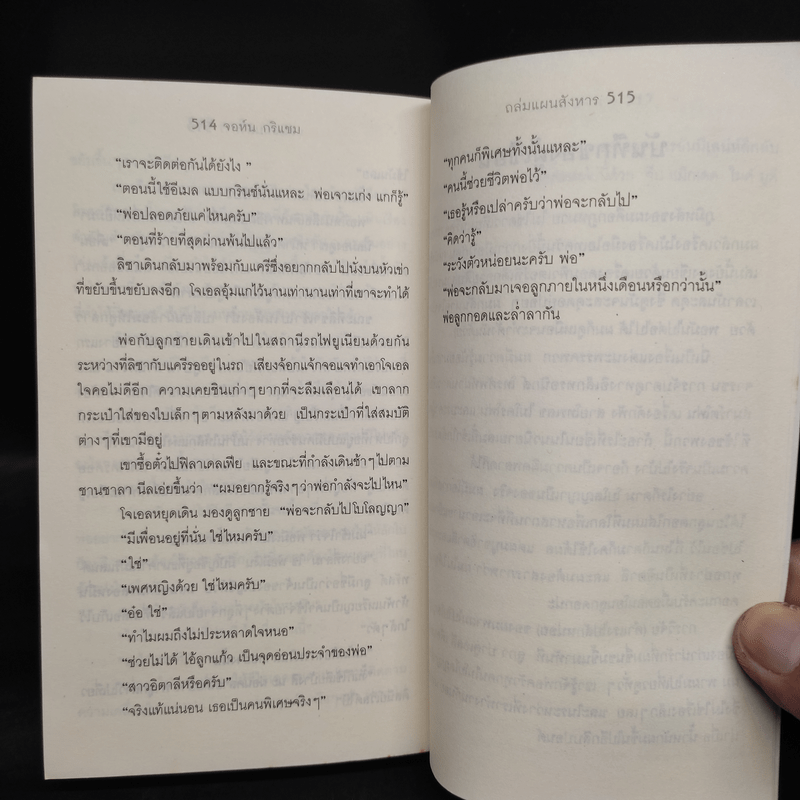 514 จอห์น กริแชม
“เราจะติดต่อกันได้ยังไง”
“ตอนนี้ใช้อีเมล แบบกรินซ์นั่นแหละ พ่อเจาะเก่ง แกก็รู้”
“พ่อปลอดภัยแค่ไหนครับ”
“ตอนที่ร้ายที่สุดผ่านพ้นไปแล้ว”
ลิซาเดินกลับมาพร้อมกับแครีซึ่งอยากกลับไปนั่งบนหัวเข่า
ที่ขยับขึ้นขยับลงอีก โจเอลอุ้มแกไว้นานเท่านานเท่าที่เขาจะทำได้
พ่อกับลูกชายเดินเข้าไปในสถานีรถไฟยูเนียนด้วยกัน
ระหว่างที่ลิซากับแครีรออยู่ในรถ เสียงจ้อกแจ้กจอแจทำเอาโจเอล
ใจคอไม่ดีอีก ความเคยชินเก่าๆยากที่จะลืมเลือนได้ เขาลาก
กระเป๋าใส่ของใบเล็กๆตามหลังมาด้วย เป็นกระเป๋าที่ใส่สมบัติ
ต่างๆที่เขามีอยู่
เขาซื้อตั๋วไปฟิลาเดลเฟีย และขณะที่กำลังเดินช้าๆไปตาม
ชานชาลา นีลเอ่ยขึ้นว่า “ผมอยากรู้จริงๆว่าพ่อกำลังจะไปไหน”
โจเอลหยุดเดิน มองดูลูกชาย “พ่อจะกลับไปโบโลญญา”
“มีเพื่อนอยู่ที่นั่น ใช่ไหมครับ”
“ใช่”
“เพศหญิงด้วย ใช่ไหมครับ”
“อ๋อ ใช่”
“ทำไมผมถึงไม่ประหลาดใจหนอ”
“ช่วยไม่ได้ ไอ้ลูกแก้ว เป็นจุดอ่อนประจำของพ่อ”
“สาวอิตาลีหรือครับ”
“จริงแท้แน่นอน เธอเป็นคนพิเศษจริงๆ”
ถล่มแผนสังหาร 515
“ทุกคนก็พิเศษทั้งนั้นแหละ”
“คนนี้ช่วยชีวิตพ่อไว้”
“เธอรู้หรือเปล่าครับว่าพ่อจะกลับไป”
“คิดว่ารู้”
“ระวังตัวหน่อยนะครับ พ่อ”
“พ่อจะกลับมาเจอลูกภายในหนึ่งเดือนหรือกว่านั้น”
พ่อลูกกอดและล่ำลากัน